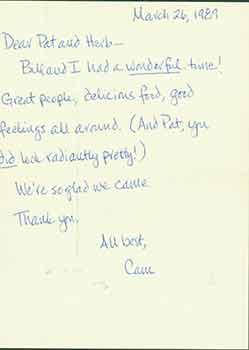 March 26, 1989
Dear Pat and Herb—
Bill and I had a wonderful time!
Great people, delicious food, good
feelings all around. (And Pat, you
did look radiantly pretty!)
We're so glad we came.
Thank you.
All best,
Cam